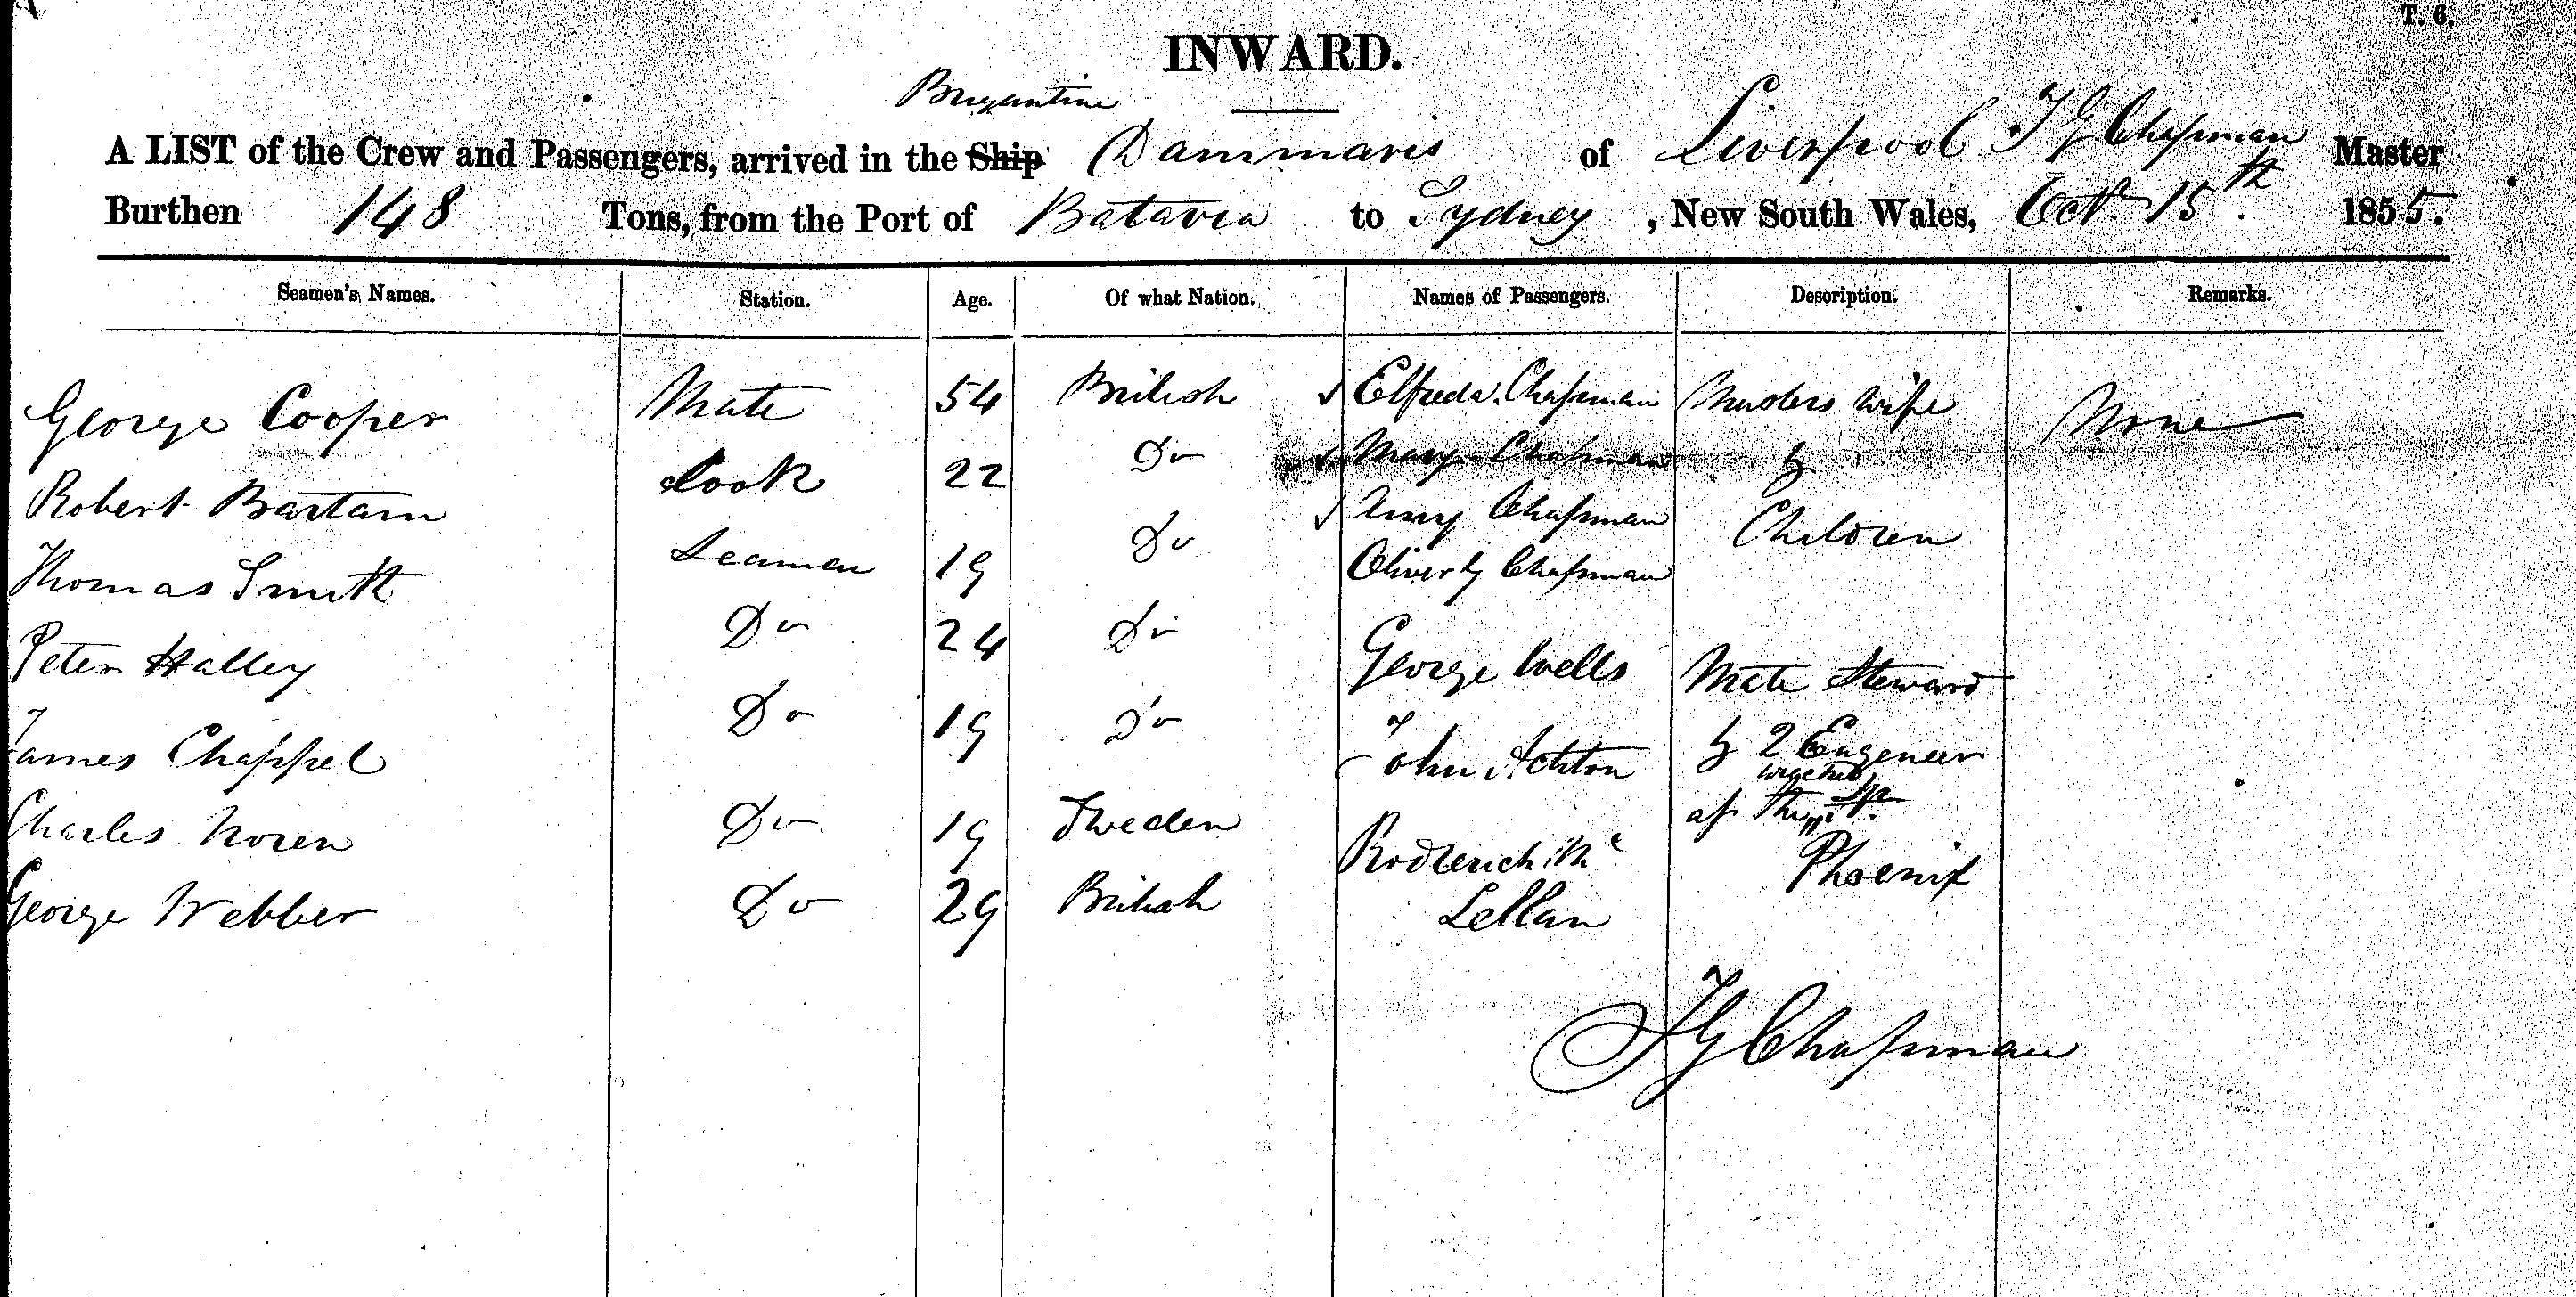 T. 6.
INWARD.
Brigantine
A LIST of the Crew and Passengers, arrived in the Ship Dammaris of Liverpool T G Chapman Master
Burthen 148 Tons, from the Port of Batavia to Sydney, New South Wales, Octr 15th 1855.
Seamen's Names. Station. Age. Of what Nation. Names of Passengers. Description. Remarks.
George Cooper Mate 54 British Elfreda Chapman Masters wife None
Robert Bartam Cook 22 Do Mary Chapman &
Thomas Smith Seaman 19 Do Amy Chapman Children
Oliver G Chapman
Peter Halley Do 24 Do George Wells Mate Steward
James Chappel Do 19 Do John Achton & 2 Engeneer
wrecked
Charles Noren Do 19 Sweden of the
George Webber Do 29 British Roderick Mc Phoenix
Lellan
T G Chapman